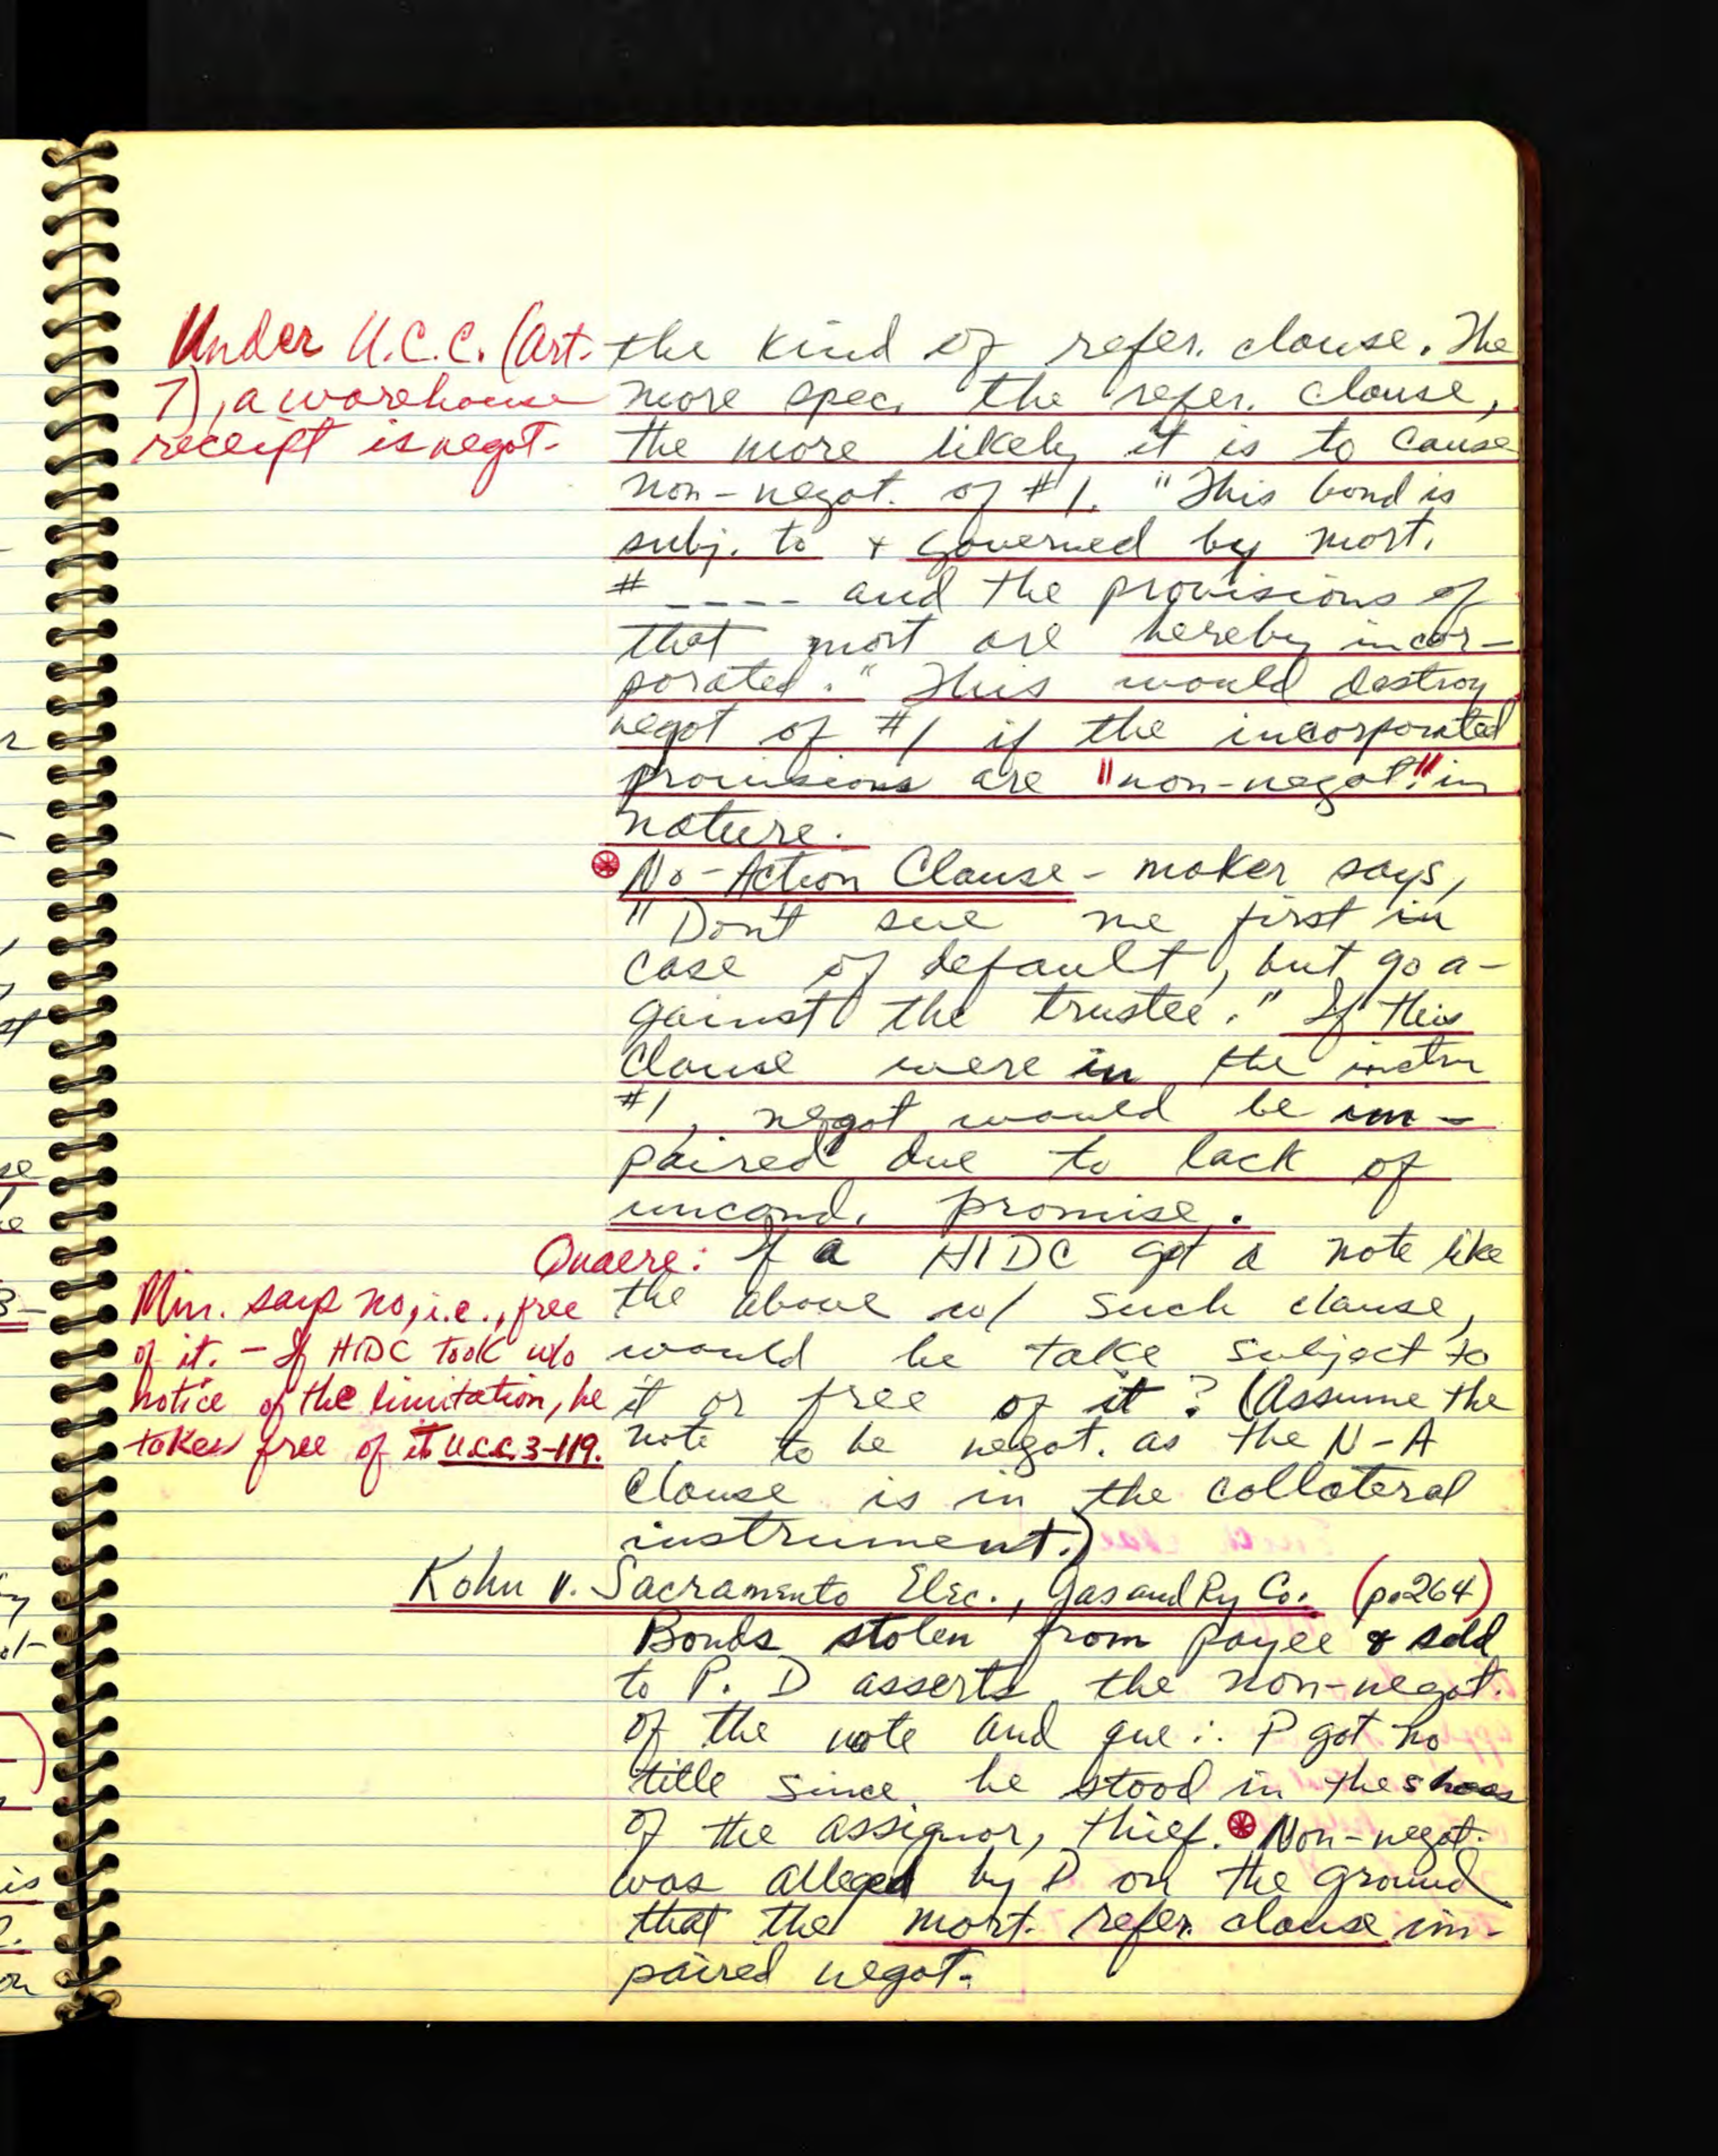 Under U.C.C. (Art.
7), a warehouse
receipt is negot.
the kind of refer. clause. The
more spec. the refer. clause,
the more likely it is to cause
non-negot. of #1. "This bond is
subj. to + governed by mort.
# ---- and the provisions of
that mort are hereby incor-
porated." This would destroy
negot of #1 if the incorporated
provisions are "non-negot." in
nature.
No-Action Clause - maker says,
"Don't sue me first in
case of default, but go a-
gainst the trustee." If this
clause were in the instru
#1, negot would be im-
paired due to lack of
uncond. promise.
Quaere: If a HIDC got a note like
the above w/ such clause,
would he take subject to
it or free of it? (Assume the
note to be negot. as the N-A
clause is in the collateral
instrument.)
Min. says no, i.e., free
of it. - If HIDC took w/o
notice of the limitation, he
takes free of it U.C.C. 3-119.
Kohn v. Sacramento Elec., Gas and Ry Co. (p.264)
Bonds stolen from payee & sold
to P. D asserts the non-negot.
of the note and que ∴ P got no
title since he stood in the shoes
of the assignor, thief. Non-negot.
was alleged by D on the ground
that the mort. refer. clause im-
paired negot.